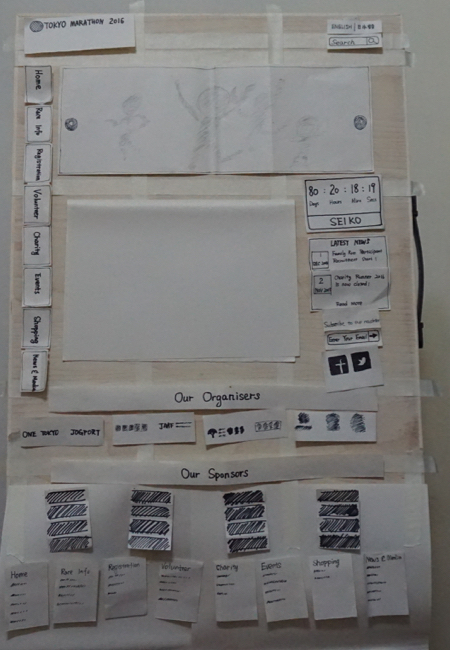 TOKYO MARATHON 2016
ENGLISH / 日本語
Search
Home
Race Info
Registration
Volunteer
Charity
Events
Shopping
News & Media
80 : 20 : 18 : 19
Days Hours Min Secs
SEIKO
LATEST NEWS
1
Family Run Participant
Recruitment
2
Charity Runner 2016
is now closed!
Read more
Subscribe to our
Enter Your Email
f
Our Organisers
ONE TOKYO JOGPORT
Our Sponsors
Home
Race Info
Registration
Volunteer
Charity
Events
Shopping
News & Media